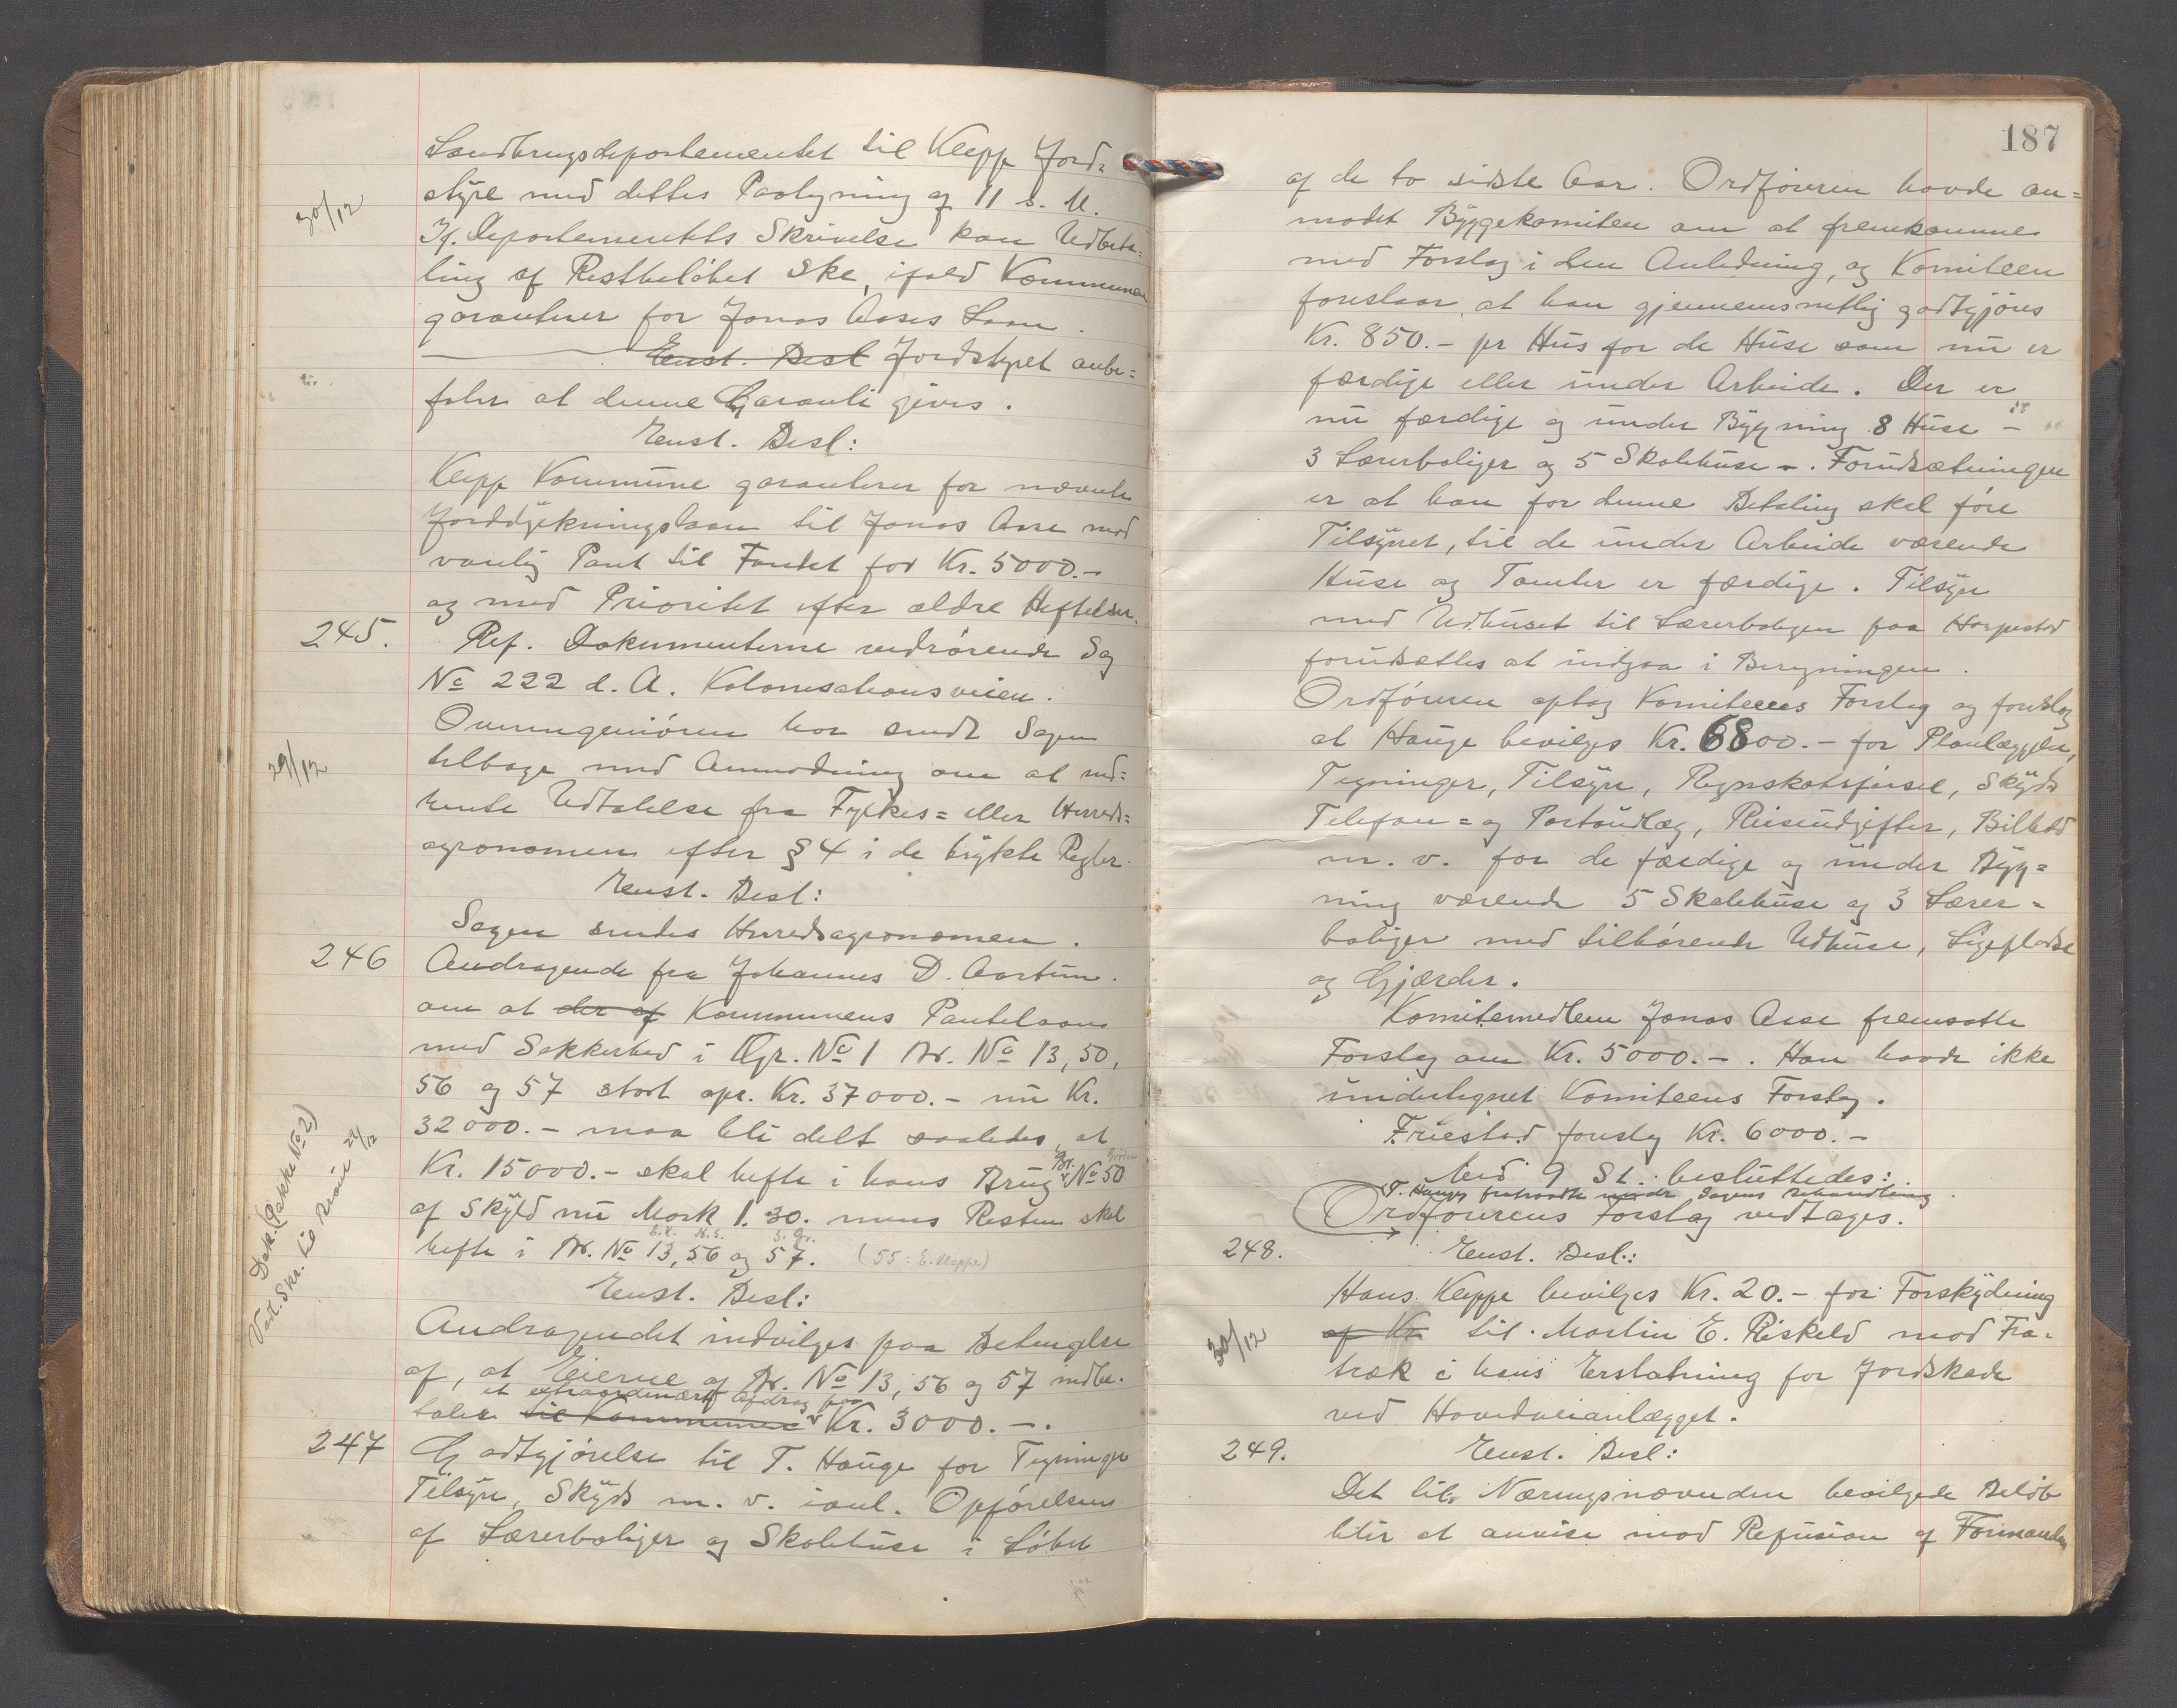 Landbrugsdepartementet til Klepp Jord-
styre med dettes Paategning af 11 s. M.
30/12
Jf. Departementets Skrivelse kan Udbeta-
ling af Restbeløbet ske, ifald Kommunen
garanterer for Jonas Aases Laan.
Enst. Besl Jordstyret anbe=
faler at denne Garanti gives.
Enst. Besl:
Klepp Kommune garanterer for nævnte
Jorddyrkningslaan til Jonas Aase mod
vanlig Pant til Fondet for Kr. 5000.-
og med Prioritet efter ældre Heftelser.
245. Ref. Dokumenterne vedrørende Sag
No 222 d. A. Kolonisationsveien.
Overingeniøren har sendt Sagen
29/12
tilbage med Anmodning om at ind=
hente Udtalelse fra Fylkes= eller Herreds=
agronomen efter § 4 i de trykte Regler.
Enst. Besl:
Sagen sendes Herredsagronomen.
246 Andragende fra Johannes D. Aartun.
om at der af Kommunens Pantelaan
med Sikkerhed i Gr. No 1 Br. No 13, 50,
56 og 57 stort opr. Kr. 37000.- nu Kr.
32000.- maa bli delt saaledes, at
Kr. 15000.- skal hefte i hans Brug Br. No 50
af Skyld nu Mark 1.30. mens Resten skal
hefte i Br. No 13, 56 og 57. (55: E. Kleppe)
Dok. (Pakke No 2)
Vedt. Skr. til 29/12
Enst. Besl:
Andragendet indvilges paa Betingelse
af, at Eierne af Br. No 13, 56 og 57 indbe-
et extraordinært Afdrag paa
taler til Kommunen Kr. 3000.-.
247 Godtgjørelse til T. Hauge for Tegninger
Tilsyn, Skyds m. v. ianl. Opførelsen
af Lærerboliger og Skolehuse i Løbet
187
af de to sidste Aar. Ordføreren havde an=
modet Byggekomiteen om at fremkomme
med Forslag i den Anledning, og Komiteen
foreslaar, at han gjennemsnitlig godtgjøres
Kr. 850.- pr Hus for de Huse som nu er
færdige eller under Arbeide. Der er
nu færdige og under Bygning 8 Huse -
3 Lærerboliger og 5 Skolehuse -. Forudsætningen
er at han for denne Betaling skal føre
Tilsynet, til de under Arbeide værende
Huse og Tomter er færdige. Tilsyn
med Udhuset til Lærerboligen paa Horpestad
forudsættes at indgaa i Beregningen.
Ordføreren optog Komiteens Forslag og foreslog
at Hauge bevilges Kr. 6800.- for Planlæggelse,
Tegninger, Tilsyn, Regnskabsførsel, Skyds
Telefon= og Portoudlæg, Reiseudgifter, Billed
m. v. for de færdige og under Byg=
ning værende 5 Skolehuse og 3 Lærer=
boliger med tilhørende Udhuse, Ligeplads
og Gjærder.
Komitemedlem Jonas Aase fremsatte
Forslag om Kr. 5000.-. Han havde ikke
undertegnet Komiteens Forslag.
Friestad foreslog Kr. 6000.-
Med 9 St. besluttedes:
T. Hauge fratraadte under Sagens Behandling.
Ordførerens Forslag vedtages.
248. Enst. Besl:
Hans Kleppe bevilges Kr. 20.- for Forskydning
30/12
af Kr. til Martin E. Riskeld mod Fra-
træk i hans Erstatning for Jordskade
ved Hovedveianlægget.
249. Enst. Besl:
Det til Næringsnævnden bevilgede Beløb
blir at anvise mod Refusion af Formanden